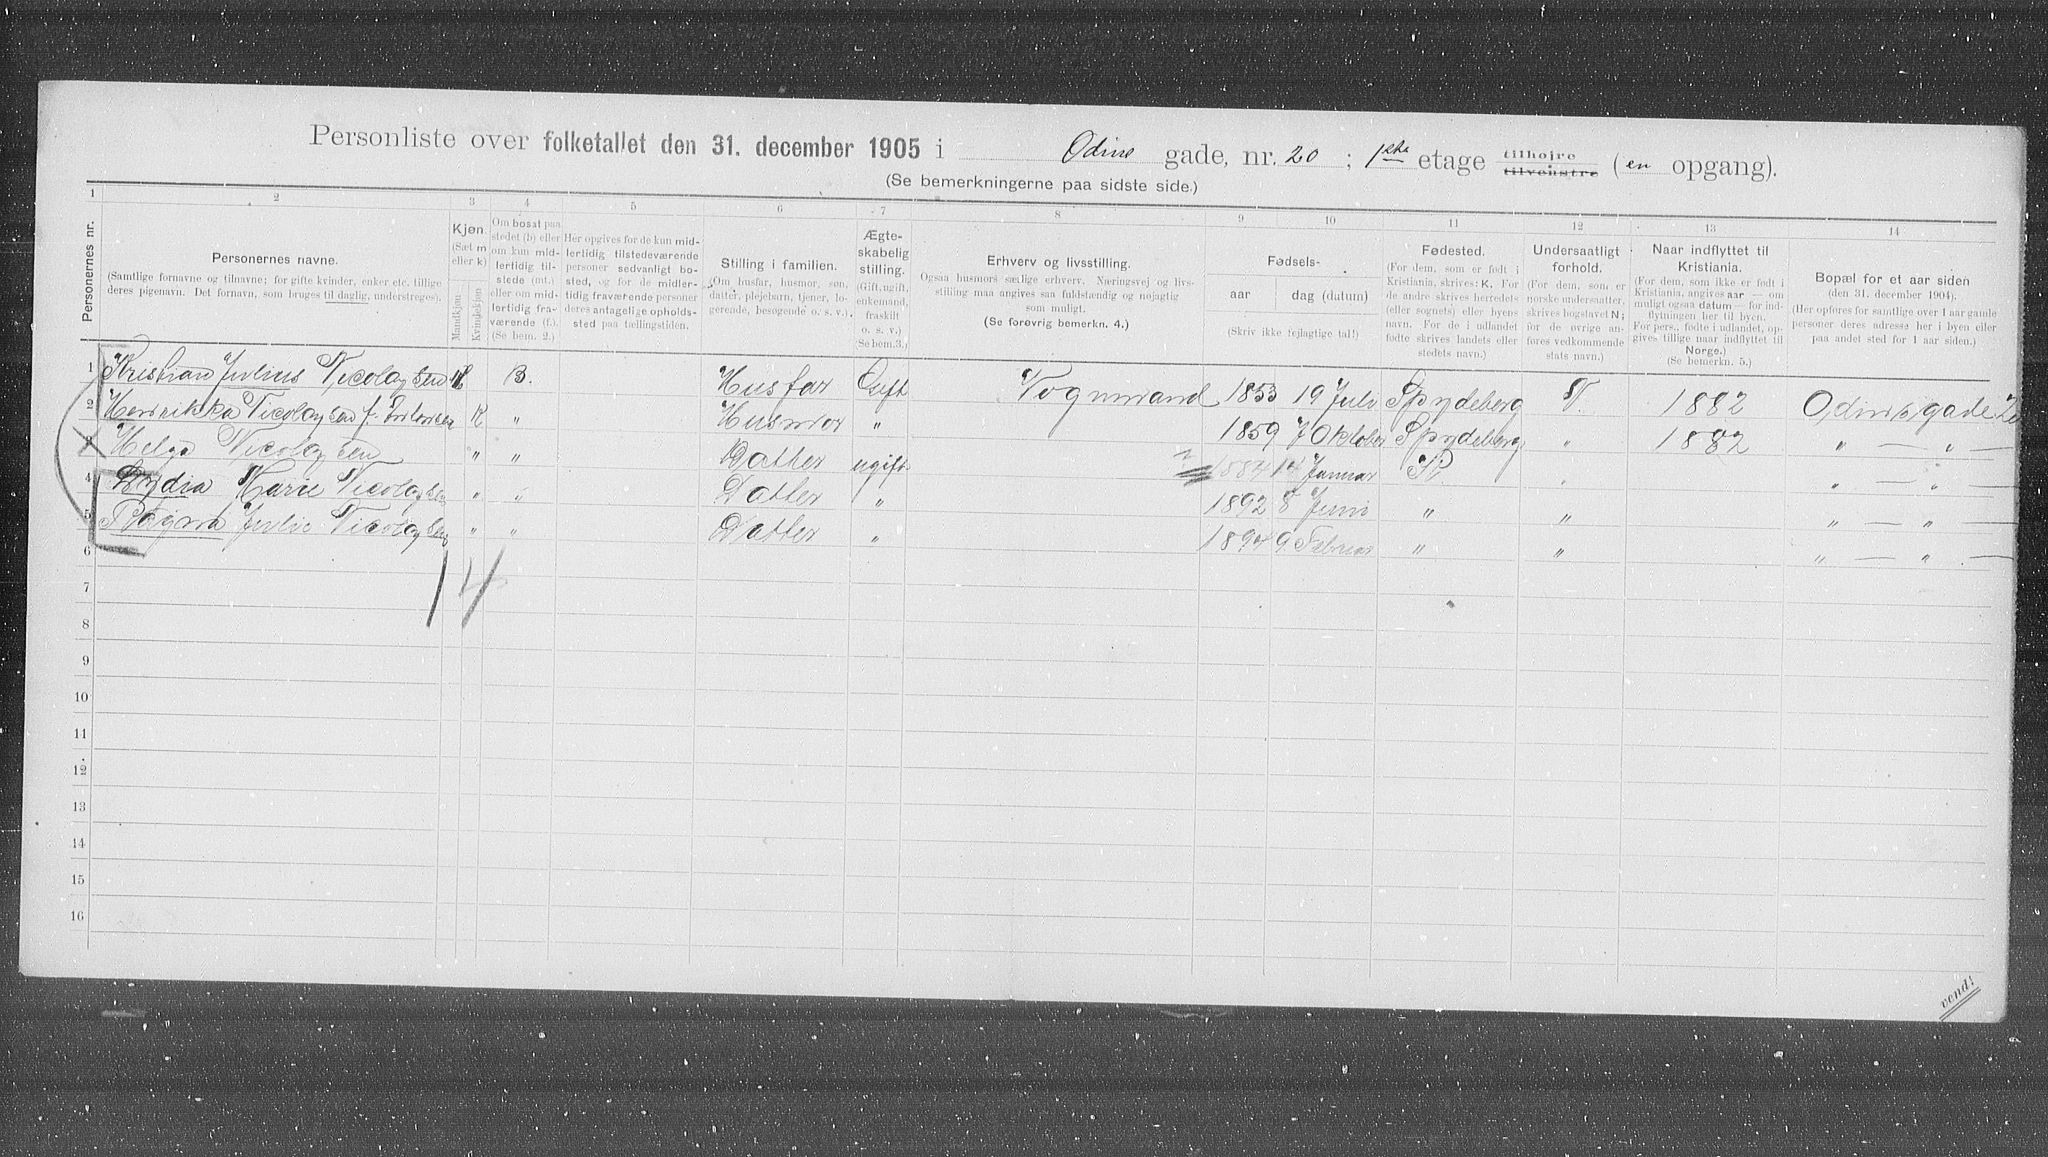 Personliste over folketallet den 31. december 1905 i Odins gade, nr. 20 ; 1ste etage tilhøire tilvenstre (en opgang).
(Se bemerkningerne paa sidste side.)
1 2 3 4 5 6 7 8 9 10 11 12 13 14
Personernes nr.
Personernes navne.
(Samtlige fornavne og tilnavne; for gifte kvinder, enker etc. tillige
deres pigenavn. Det fornavn, som bruges til daglig, understreges).
Kjøn.
(Sæt m
eller k)
Mandkjøn
Kvindekjøn
Om bosat paa
stedet (b) eller
om kun mid-
lertidig til-
stede (mt.)
eller om mid-
lertidig fra-
værende (f.).
(Se bem. 2.)
Her opgives for de kun mid-
lertidig tilstedeværende
personer sedvanligt bo-
sted, og for de midler-
tidig fraværende personer
deres antagelige opholds-
sted paa tællingstiden.
Stilling i familien.
(Om husfar, husmor, søn,
datter, plejebarn, tjener, lo-
gerende, besøgende o. s. v.)
Ægte-
skabelig
stilling.
(Gift, ugift,
enkemand,
fraskilt
o. s. v.)
(Se bem. 3.)
Erhverv og livsstilling.
Ogsaa husmors særlige erhverv. Næringsvej og livs-
stilling maa angives saa fuldstændig og nøjagtig
som muligt.
(Se forøvrig bemerkn. 4.)
Fødsels-
aar dag (datum)
(Skriv ikke fejlagtige tal!)
Fødested.
(For dem, som er født i
Kristiania, skrives: K. For
de andre skrives herredets
(eller sognets) eller byens
navn. For de i udlandet
fødte skrives landets eller
stedets navn.)
Undersaatligt
forhold.
(For dem, som er
norske undersaatter,
skrives bogstavet N;
for de øvrige an-
føres vedkommende
stats navn.)
Naar indflyttet til
Kristiania.
(For dem, som ikke er født i
Kristiania, angives aar — om
muligt ogsaa datum — for ind-
flytningen her til byen.
For pers., fødte i udlandet, op-
gives tillige naar indflyttet til
Norge.)
(Se bemerkn. 5.)
Bopæl for et aar siden
(den 31. december 1904).
(Her opføres for samtlige over 1 aar gamle
personer deres adresse her i byen eller
paa andet sted for 1 aar siden.)
1 Kristian Julius Nicolaysen M B. Husfar Gift Vognmand 1853 19 Juli Spydeberg N. 1882 Odinsgade 20
2 Henrikka Nicolaysen f. K „ Husmor „ 1859 7 Oktober Spydeberg „ 1882 „ — „ —
3 Helga Nicolaysen „ „ Datter ugift 1884 14 Januar K. „ „ — „ —
4 Lydia Marie Nicolaysen „ „ Datter „ 1892 8 Juni „ „ „ — „ —
5 Ragna Julie Nicolaysen „ „ Datter „ 1894 9 Februar „ „ „ — „ —
6
14
7
8
9
10
11
12
13
14
15
16
vend!